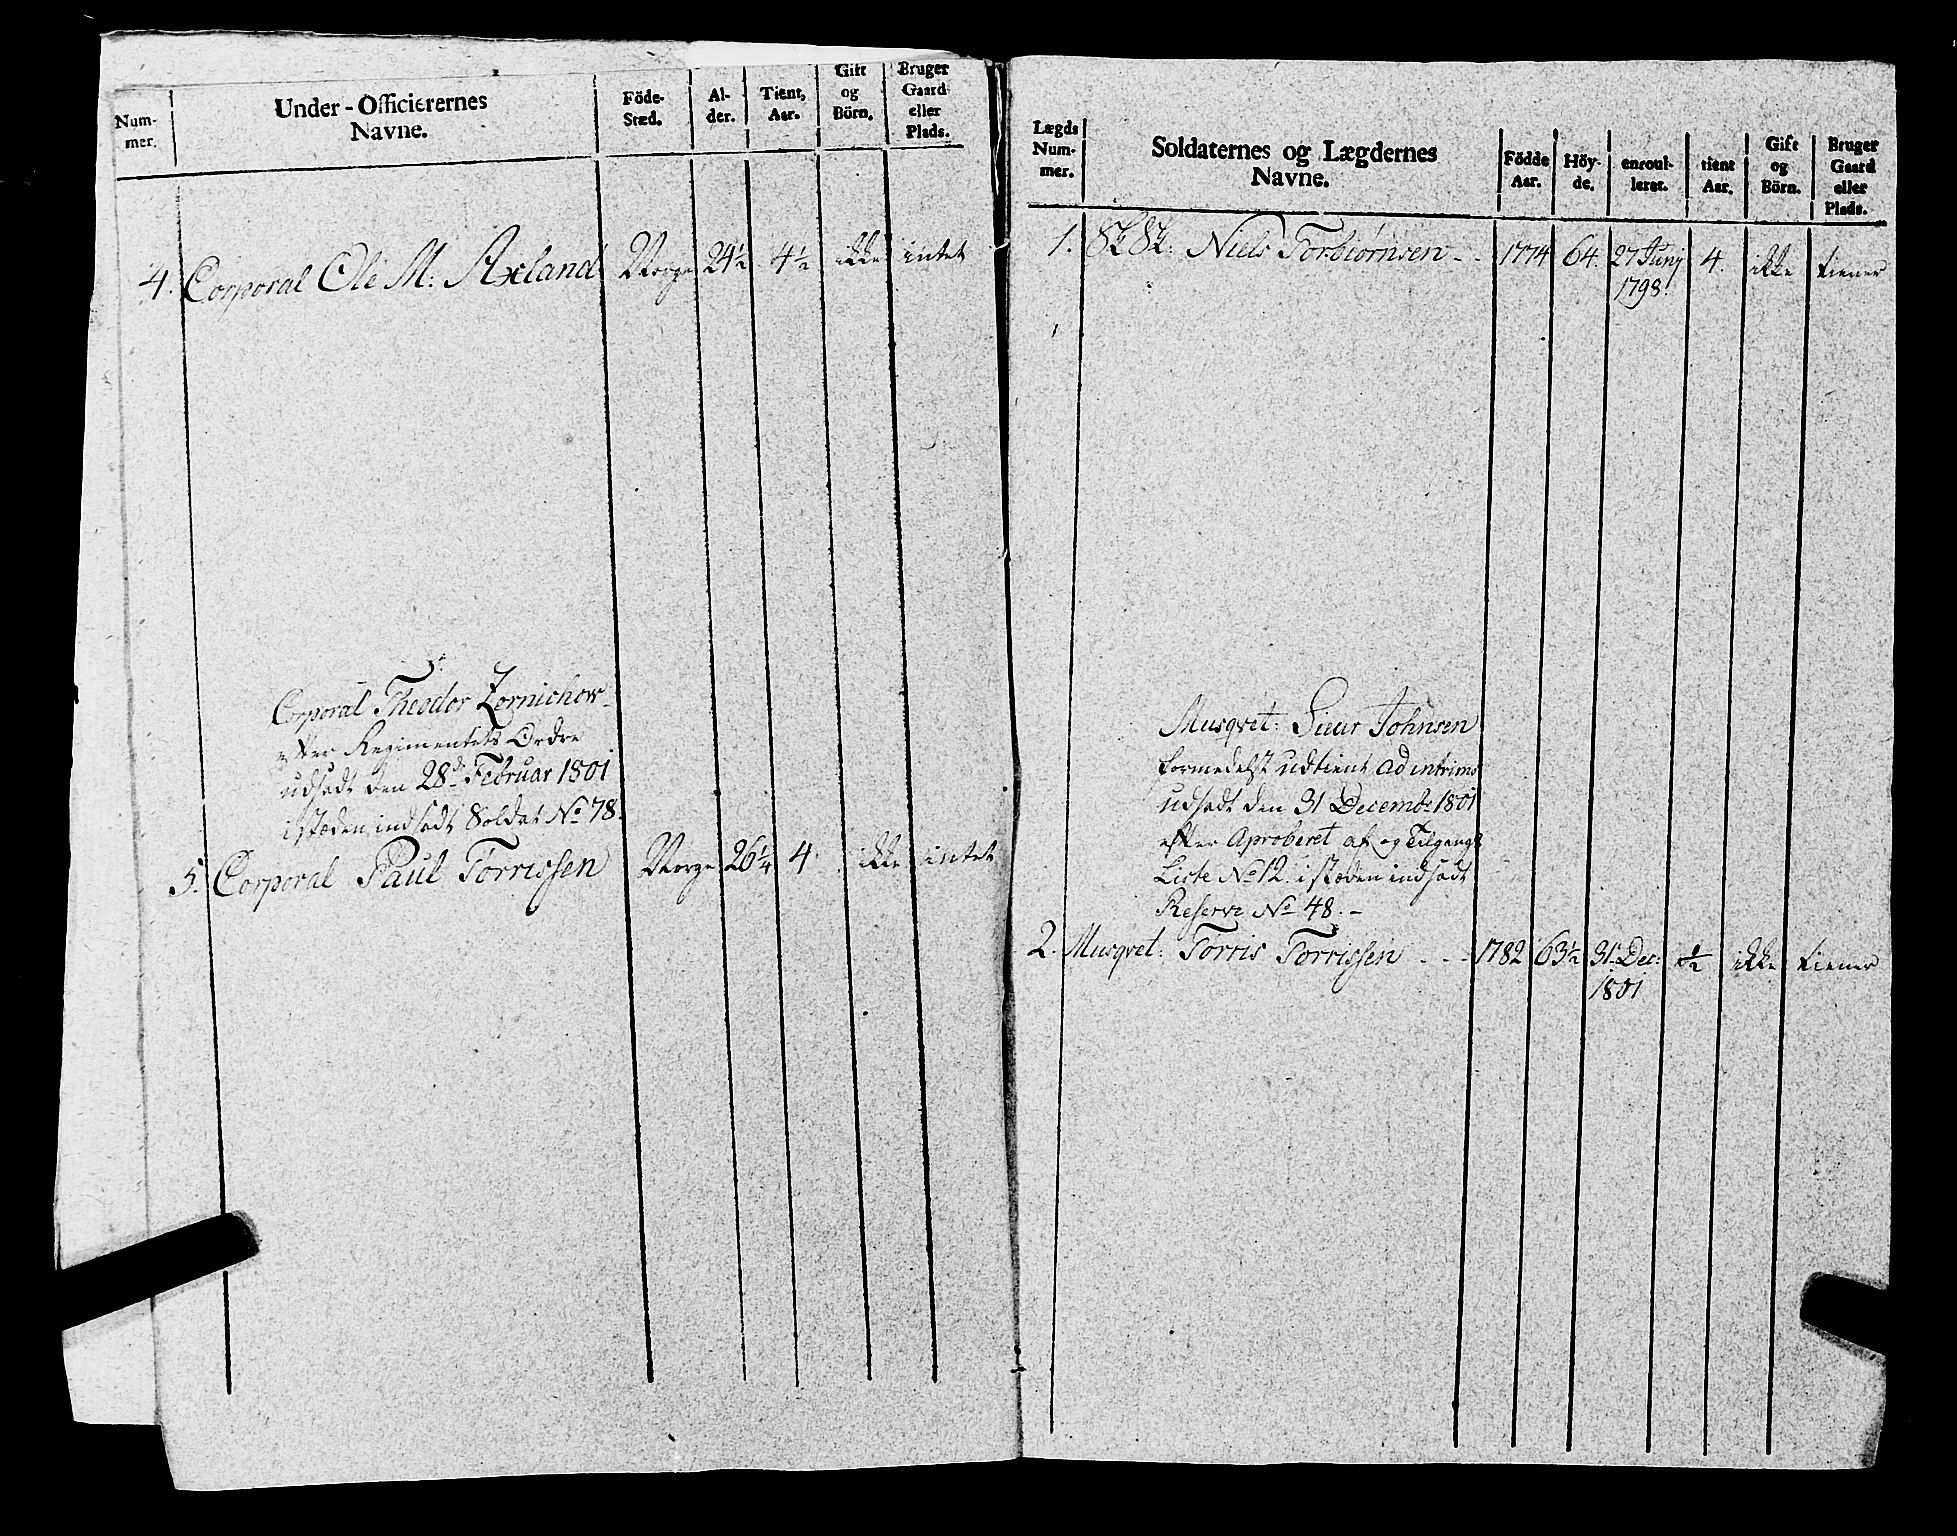 Num-
mer.
Under-Officierernes
Navne.
Föde-
Stæd.
Al-
der.
Tient,
Aar.
Gift
og
Börn.
Bruger
Gaard
eller
Plads.
4. Corporal Ole M: Axland Norge 24½ 4½ ikke intet
5.
Corporal Theodor Zernichow
efter Regimentets Ordre
udsadt den 28d Februar 1801
i stæden indsadt Soldat No 78.
5. Corporal Paul Torrissen Norge 26¼ 4. ikke intet
Lægds
Num-
mer.
Soldaternes og Lægdernes
Navne.
Födde
Aar.
Höy-
de.
enroul-
leret.
tient
Aar.
Gift
og
Börn.
Bruger
Gaard
eller
Plads.
1. Niels Torbiørnsen - - 1774 64. 27 Junj 4. ikke tiener
1798.
Musqvet: Siur Johnsen
formedelst udtient ad intrims
udsadt den 31 Decembr 1801
efter Aproberet af og Tilgangs
Liste No 12. i stæden indsadt
Reserve No 48. -
2. Musqvet: Tørris Torrissen - - - 1782 63½ 31. Dec: ½ ikke tiener
1801